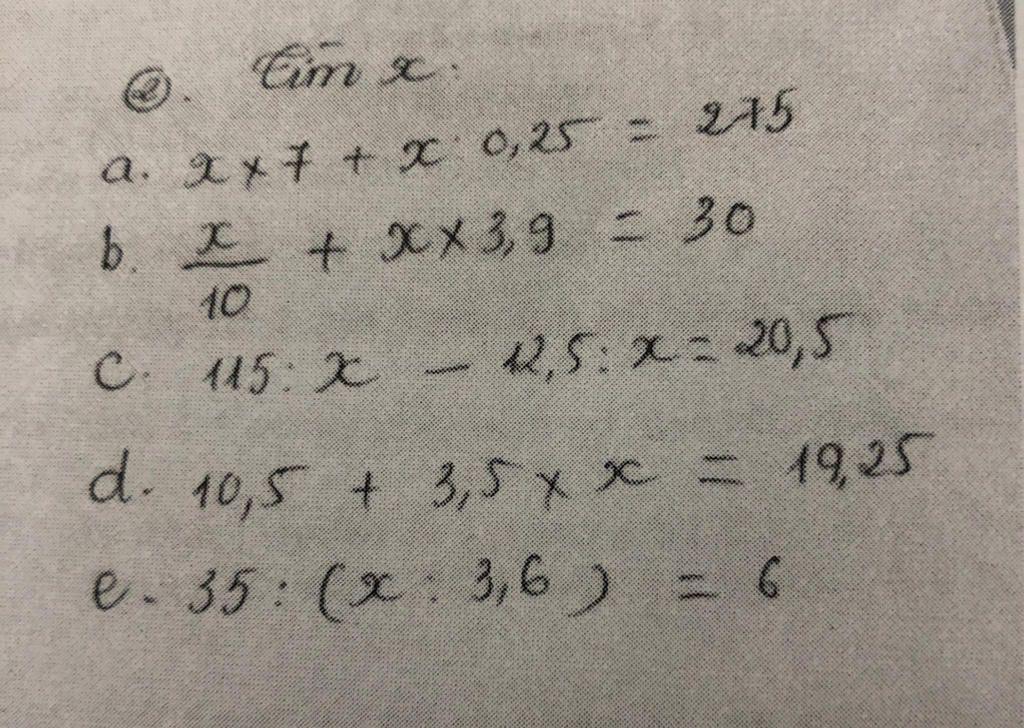 ②. Tìm x.
a. x × 7 + x : 0,25 = 275
b. x/10 + x × 3,9 = 30
c. 115 : x - 12,5 : x = 20,5
d. 10,5 + 3,5 × x = 19,25
e. 35 : (x : 3,6) = 6